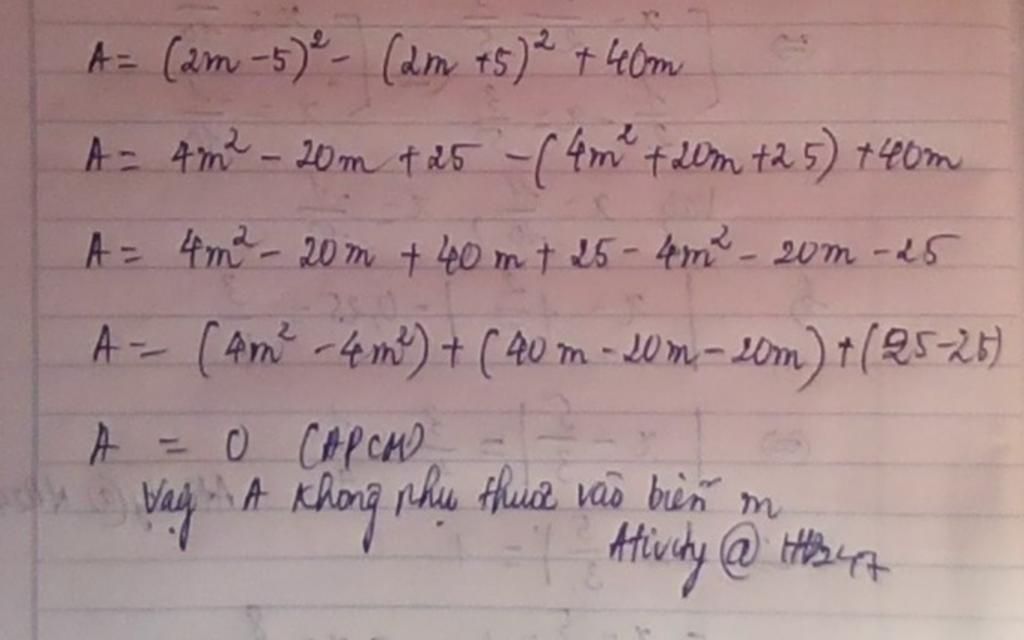 A = (2m - 5)² - (2m + 5)² + 40m
A = 4m² - 20m + 25 - (4m² + 20m + 25) + 40m
A = 4m² - 20m + 40m + 25 - 4m² - 20m - 25
A = (4m² - 4m²) + (40m - 20m - 20m) + (25 - 25)
A = 0 (ĐPCM)
Vậy A không phụ thuộc vào biến m
Ativity @